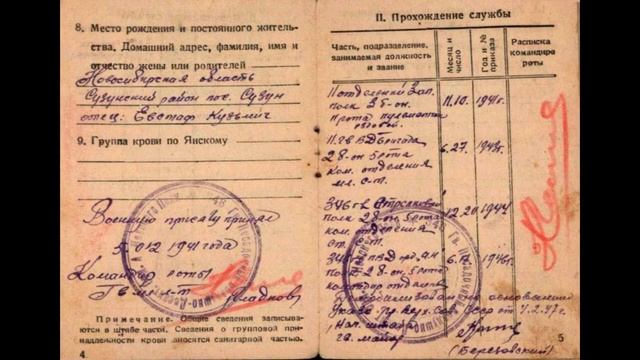 8. Место рождения и постоянного житель-
ства. Домашний адрес, фамилия, имя и
отчество жены или родителей
Новосибирская область
Сузунский район пос. Сузун
отец: Евстаф Кузьмич
9. Группа крови по Янскому
Военную присягу принял
1941 года
Командир роты
Гв мл. л-т
Примечание. Общие сведения записы-
ваются в штабе части. Сведения о групповой при-
надлежности крови вносятся санитарной частью.
4
II. Прохождение службы
Часть, подразделение, занимаемая должность и звание
Месяц и число
Год и № приказа
Расписка командира роты
11 отдельный зап.
полк 3 б-он.
рота
11.10. 1941г.
11 гв. ВДбригада
2 б-он 5 рота
ком. отделения
мл. с-т.
6.27. 1943г.
346 гв Стрелковый
полк 2 б-он 5 рота
ком. отделения
ст. с-т.
12.20 1944
полк 2 б-он 5 рота
командир отделения
1946г.
Демобилизован на основании
Указа Пр. Верх. Сов. СССР от
Нач. штаба
гв. майор
(Березовский)
5